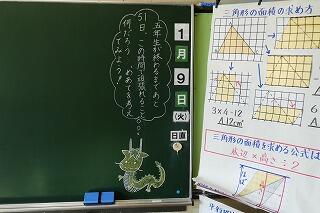 五年生が終わるまであと
51日、この時間で頑張れること
何だろう?めあてを考え
てみよう!
1
月
9
日
(火)
日直
三角形の面積の求め方
3×4=12
△12cm²
三角形の面積を求める公式は
底辺×高さ÷?